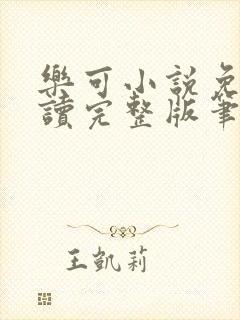 樂可小說免
讀完整版筆
王凱莉